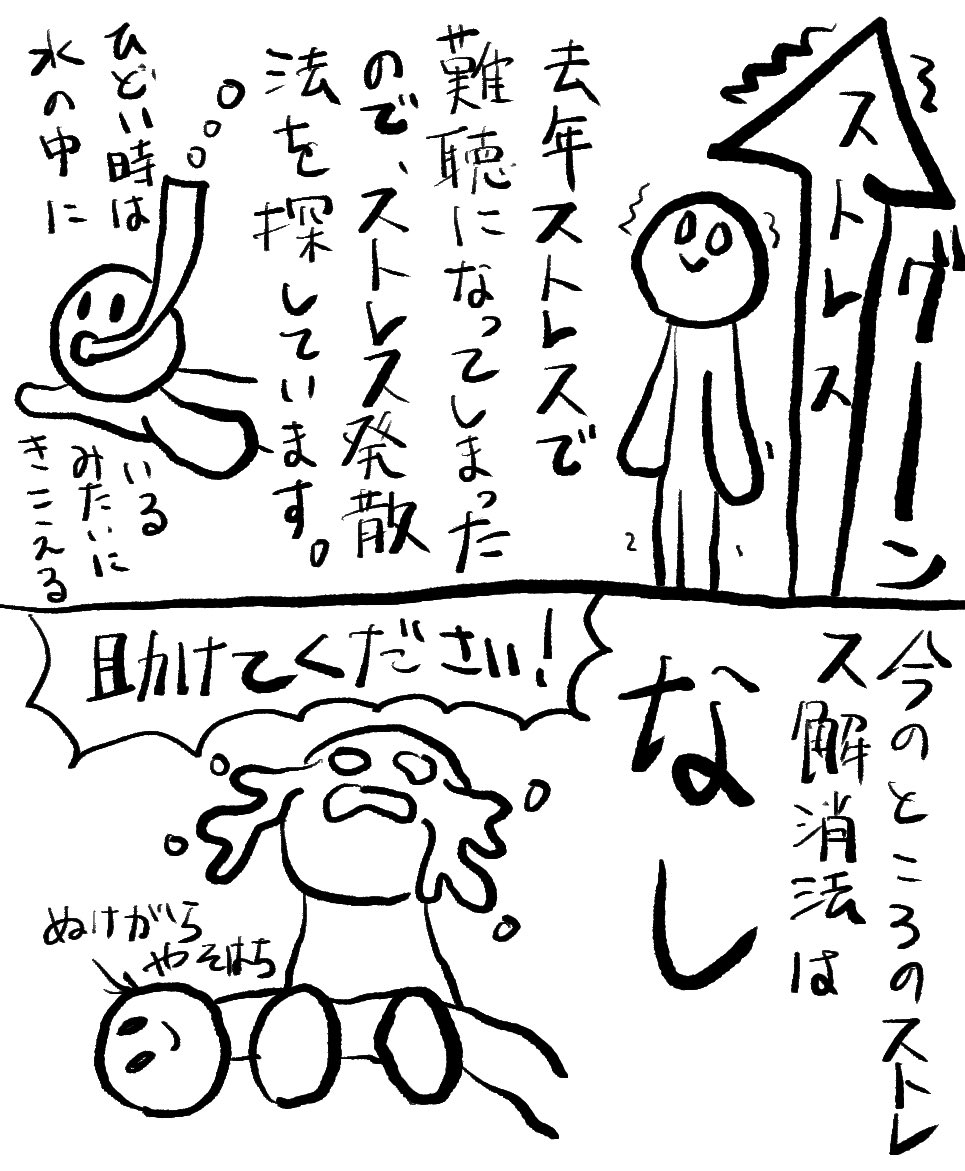 ストレス
グーン
去年ストレスで
難聴になってしまった
ので、ストレス発散
法を探しています。
ひどい時は
水の中に
いる
みたいに
きこえる
今のところのストレ
ス解消法は
なし
助けてください!
ぬけがら
やそはち